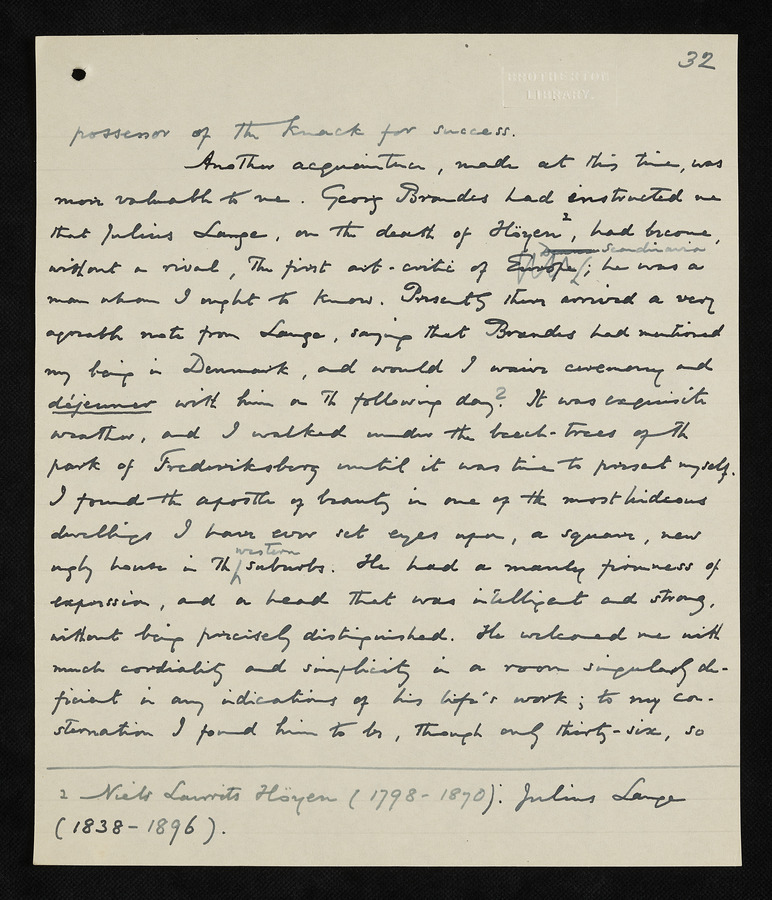 32
BROTHERTON
LIBRARY.
possessor of the knack for success.
Another acquaintance, made at this time, was
more valuable to me. Georg Brandes had instructed me
that Julius Lange, on the death of Höyen2, had become,
Scandinavia
without a rival, the first art-critic of Europe; he was a
man whom I ought to know. Presently there arrived a very
agreeable note from Lange, saying that Brandes had mentioned
my being in Denmark, and would I waive ceremony and
déjeuner with him on the following day? It was exquisite
weather, and I walked under the beech-trees of the
park of Frederiksberg until it was time to present myself.
I found the apostle of beauty in one of the most hideous
dwellings I have ever set eyes upon, a square, new
western
ugly house in the suburbs. He had a manly firmness of
expression, and a head that was intelligent and strong,
without being precisely distinguished. He welcomed me with
much cordiality and simplicity in a room singularly de-
ficient in any indications of his life's work; to my con-
sternation I found him to be, though only thirty-six, so
2 Niels Laurits Höyen (1798-1870); Julius Lange
(1838-1896).